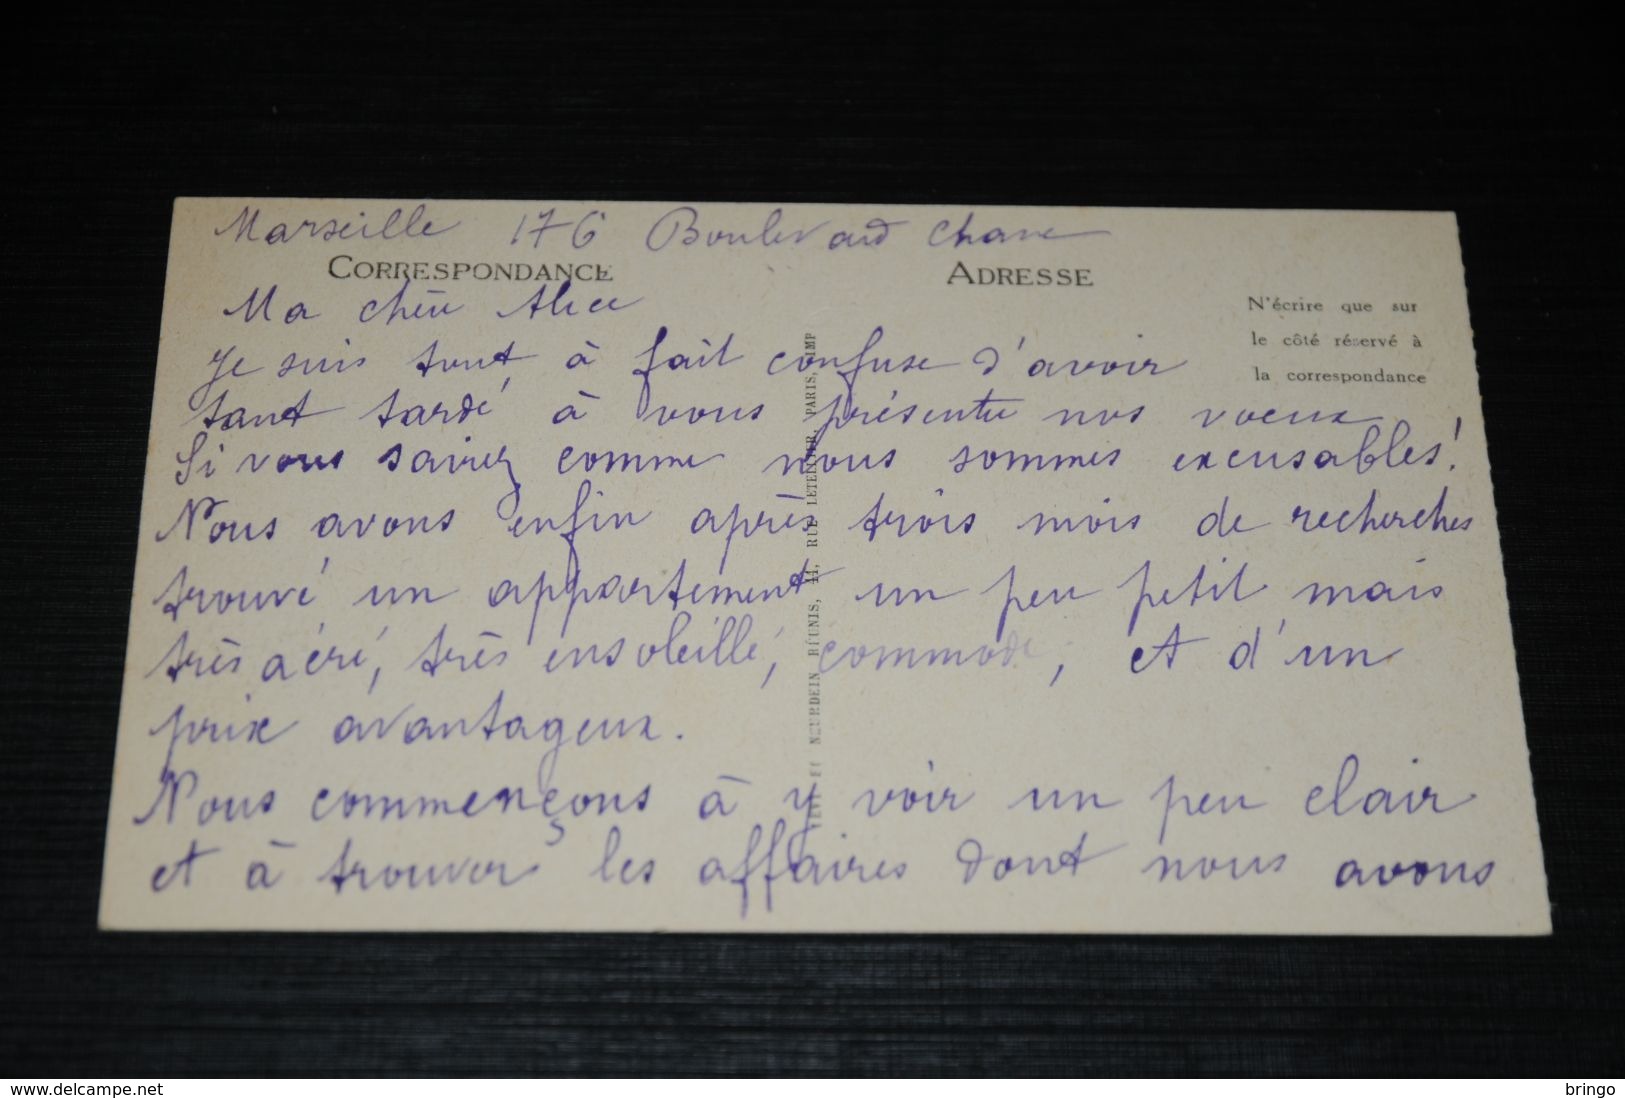 Marseille 176 Boulevard Chave
CORRESPONDANCE
ADRESSE
N'écrire que sur
le côté réservé à
la correspondance
Ma chère Alice
Je suis tout à fait confuse d'avoir
tant tardé à vous présenter nos voeux
Si vous saviez comme nous sommes excusables!
Nous avons enfin après trois mois de recherches
trouvé un appartement un peu petit mais
très aéré, très ensoleillé, commode, et d'un
prix avantageux.
Nous commençons à y voir un peu clair
et à trouver les affaires dont nous avons
NEURDEIN RÉUNIS, 44, RUE LETELLIER, PARIS, IMP
www.delcampe.net
bringo